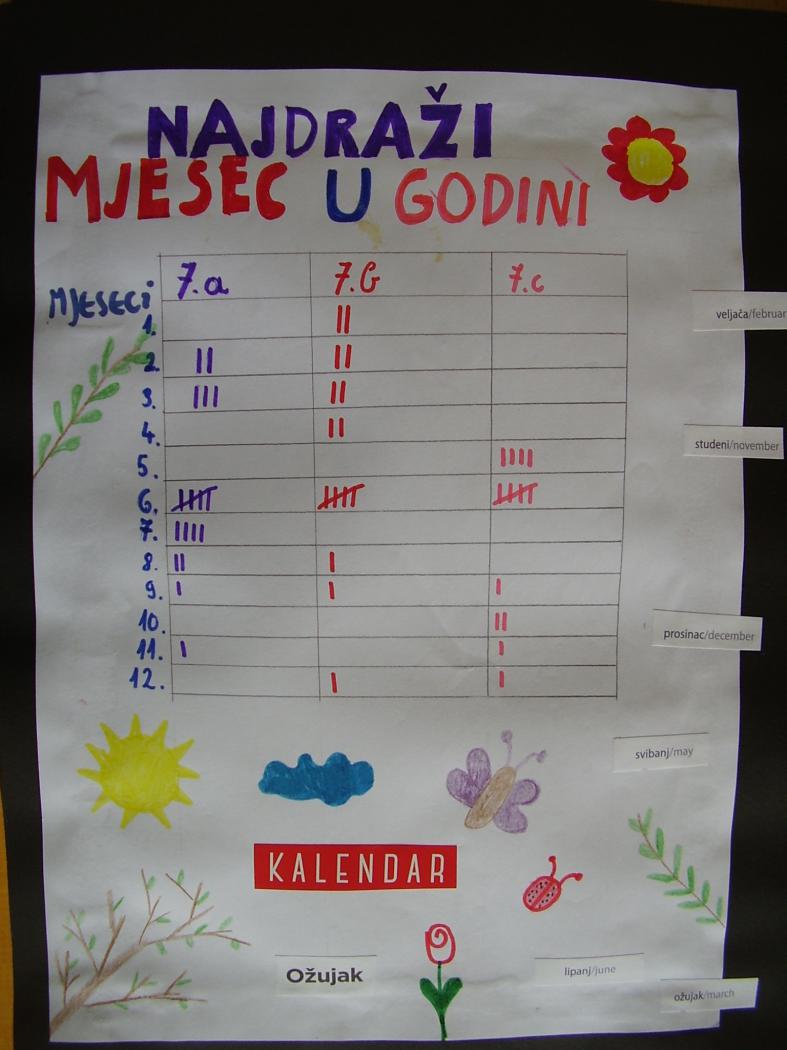 NAJDRAŽI
MJESEC U GODINI
MJESECI 7.a 7.b 7.c
1. II
2. II II
3. III II
4. II
5. IIII
6. IIII IIII IIII
7. IIII
8. II I
9. I I I
10. II
11. I I
12. I I
veljača/februar
studeni/november
prosinac/december
svibanj/may
KALENDAR
Ožujak
lipanj/june
ožujak/march